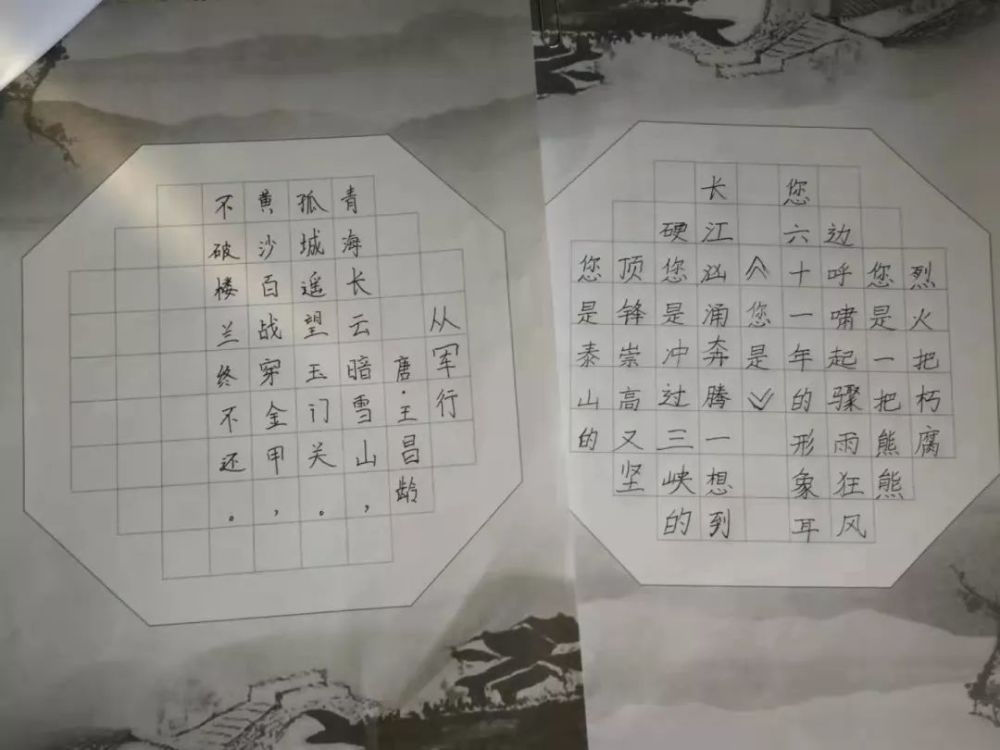 从军行
唐·王昌龄
青海长云暗雪山，
孤城遥望玉门关。
黄沙百战穿金甲，
不破楼兰终不还。
您是泰山的
顶锋崇高又坚
硬您是冲过三峡的
长江汹涌奔腾一想到
《您是》
您六十一年的形象耳
边呼啸起骤雨狂风
您是一把熊熊
烈火把朽腐